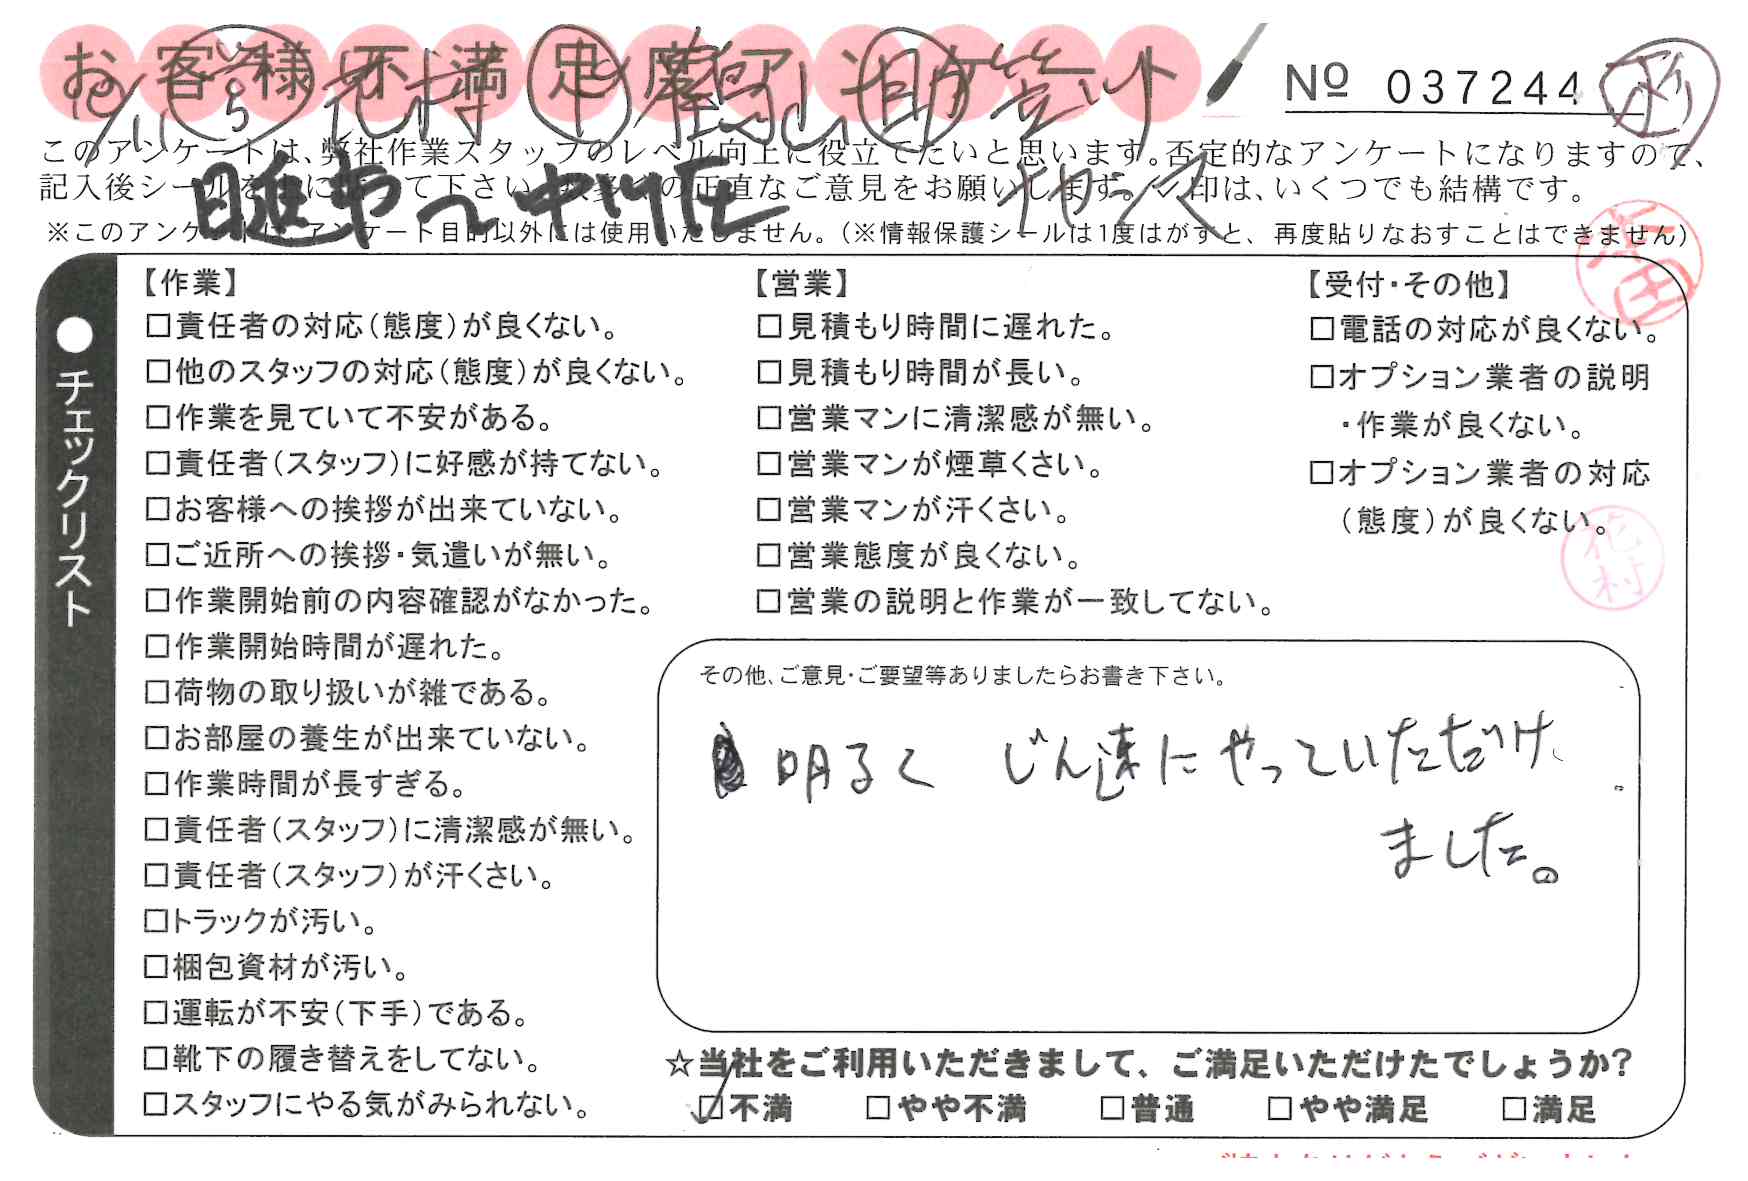 お客様不満足度アンケート
№ 037244
このアンケートは、弊社作業スタッフのレベル向上に役立てたいと思います。否定的なアンケートになりますので、
記入後シールを上に貼って下さい。数多くの正直なご意見をお願いします。✓印は、いくつでも結構です。
※このアンケートは、アンケート目的以外には使用いたしません。(※情報保護シールは1度はがすと、再度貼りなおすことはできません)
浜田
●チェックリスト
【作業】
□責任者の対応(態度)が良くない。
□他のスタッフの対応(態度)が良くない。
□作業を見ていて不安がある。
□責任者(スタッフ)に好感が持てない。
□お客様への挨拶が出来ていない。
□ご近所への挨拶・気遣いが無い。
□作業開始前の内容確認がなかった。
□作業開始時間が遅れた。
□荷物の取り扱いが雑である。
□お部屋の養生が出来ていない。
□作業時間が長すぎる。
□責任者(スタッフ)に清潔感が無い。
□責任者(スタッフ)が汗くさい。
□トラックが汚い。
□梱包資材が汚い。
□運転が不安(下手)である。
□靴下の履き替えをしてない。
□スタッフにやる気がみられない。
【営業】
□見積もり時間に遅れた。
□見積もり時間が長い。
□営業マンに清潔感が無い。
□営業マンが煙草くさい。
□営業マンが汗くさい。
□営業態度が良くない。
□営業の説明と作業が一致してない。
【受付・その他】
□電話の対応が良くない。
□オプション業者の説明
・作業が良くない。
□オプション業者の対応
(態度)が良くない。
花村
その他、ご意見・ご要望等ありましたらお書き下さい。
明るく じん速にやっていただけ
ました。
☆当社をご利用いただきまして、ご満足いただけたでしょうか?
□不満 □やや不満 □普通 □やや満足 □満足